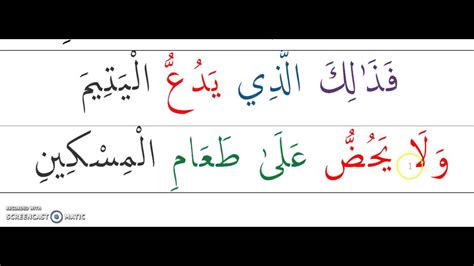 فَذَٰلِكَ الَّذِي يَدُعُّ الْيَتِيمَ
وَلَا يَحُضُّ عَلَىٰ طَعَامِ الْمِسْكِينِ
RECORDED WITH
SCREENCAST MATIC